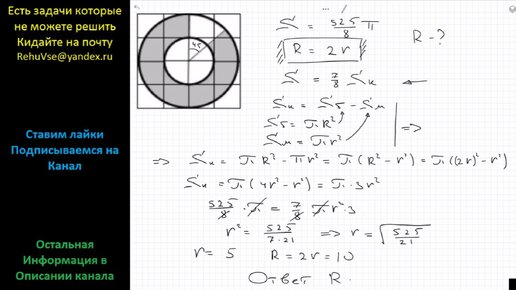 Есть задачи которые
не можете решить
Кидайте на почту
RehuVse@yandex.ru
Ставим лайки
Подписываемся на
Канал
Остальная
Информация в
Описании канала
45
S = 525/8 π
R = 2r
R - ?
S = 7/8 Sк
Sк = Sб - Sм
Sб = πR²
Sм = πr²
=>
=> Sк = πR² - πr² = π(R² - r²) = π((2r)² - r²)
Sк = π(4r² - r²) = π · 3r²
525/8 · π = 7/8 π r² · 3
r² = 525/7·21 => r = √525/21
r = 5 R = 2r = 10
Ответ R